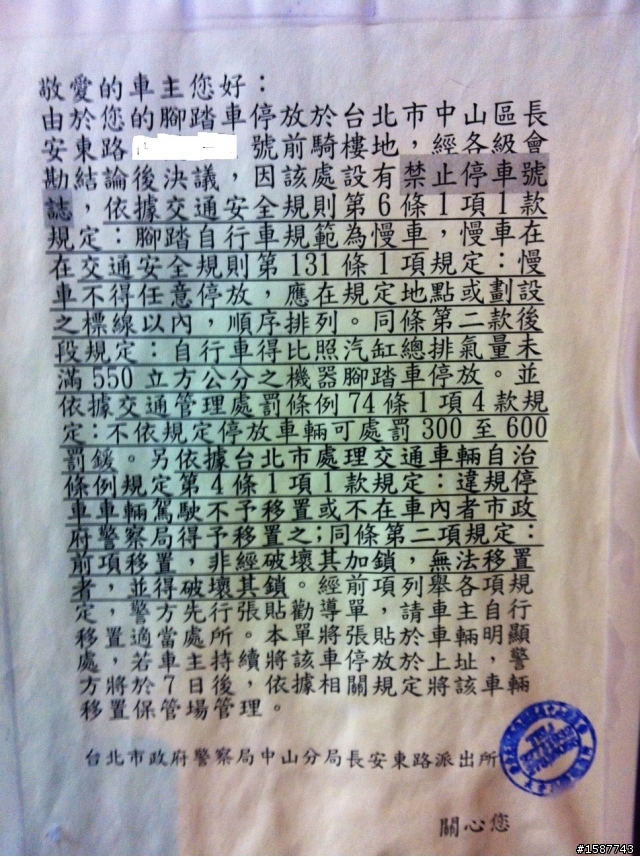 敬愛的車主您好：
由於您的腳踏車停放於台北市中山區長
安東路 號前騎樓地，經各級會
勘結論後決議，因該處設有禁止停車號
誌，依據交通安全規則第6條1項1款
規定：腳踏自行車規範為慢車，慢車在
在交通安全規則第131條1項規定：慢
車不得任意停放，應在規定地點或劃設
之標線以內，順序排列。同條第二款後
段規定：自行車得比照汽缸總排氣量未
滿550立方公分之機器腳踏車停放。並
依據交通管理處罰條例74條1項4款規
定：不依規定停放車輛可處罰300至600
罰鍰。另依據台北市處理交通車輛自治
條例規定第4條1項1款規定：違規停
車車輛駕駛不予移置或不在車內者市政
府警察局得予移置之；同條第二項規定：
前項移置，非經破壞其加鎖，無法移置
者，並得破壞其鎖。經前項列舉各項規
定，警方先行張貼勸導單，請車主自行
移置適當處所。本單將張貼於車輛明顯
處，若車主持續將該車停放於上址，警
方將於7日後，依據相關規定將該車輛
移置保管場管理。
台北市政府警察局中山分局長安東路派出所
關心您
#1587743